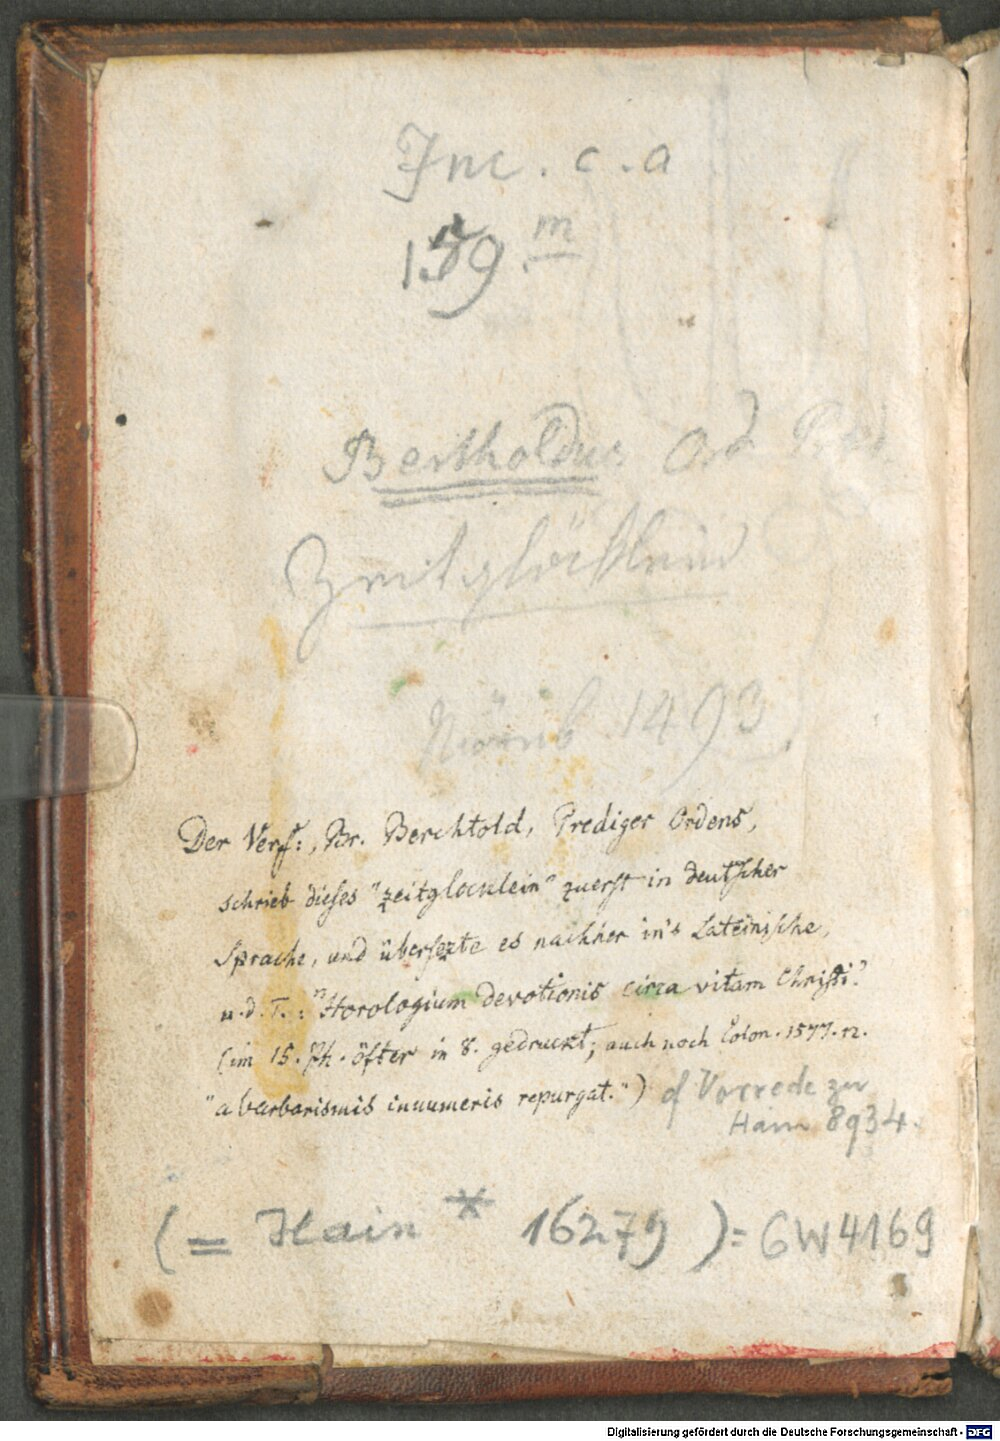 Inc. c. a
159 m
Bertholdus Ord Pred
Zeitglöcklein
Nürnb 1493.
Der Verf:, Br. Berchtold, Prediger Ordens,
schrieb dieses "zeitglocklein" zuerst in deutscher
Sprache, und übersezte es nachher in's Lateinische,
u. d. T.: "Horologium devotionis circa vitam Christi"
(im 15. Jh. öfter in 8. gedruckt; auch noch Colon. 1577. 12.
"a barbarismis innumeris repurgat.") cf Vorrede zu
Hain 8934.
(= Hain * 16279) = GW 4169
Digitalisierung gefördert durch die Deutsche Forschungsgemeinschaft - DFG